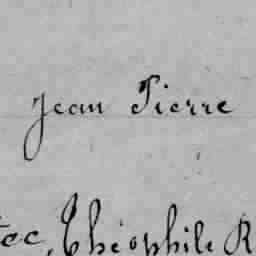 Jean Pierre
Théophile R